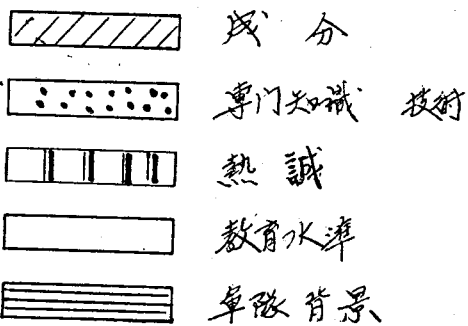 成 分
專门知識 技術
熱 誠
教育水準
軍隊背景